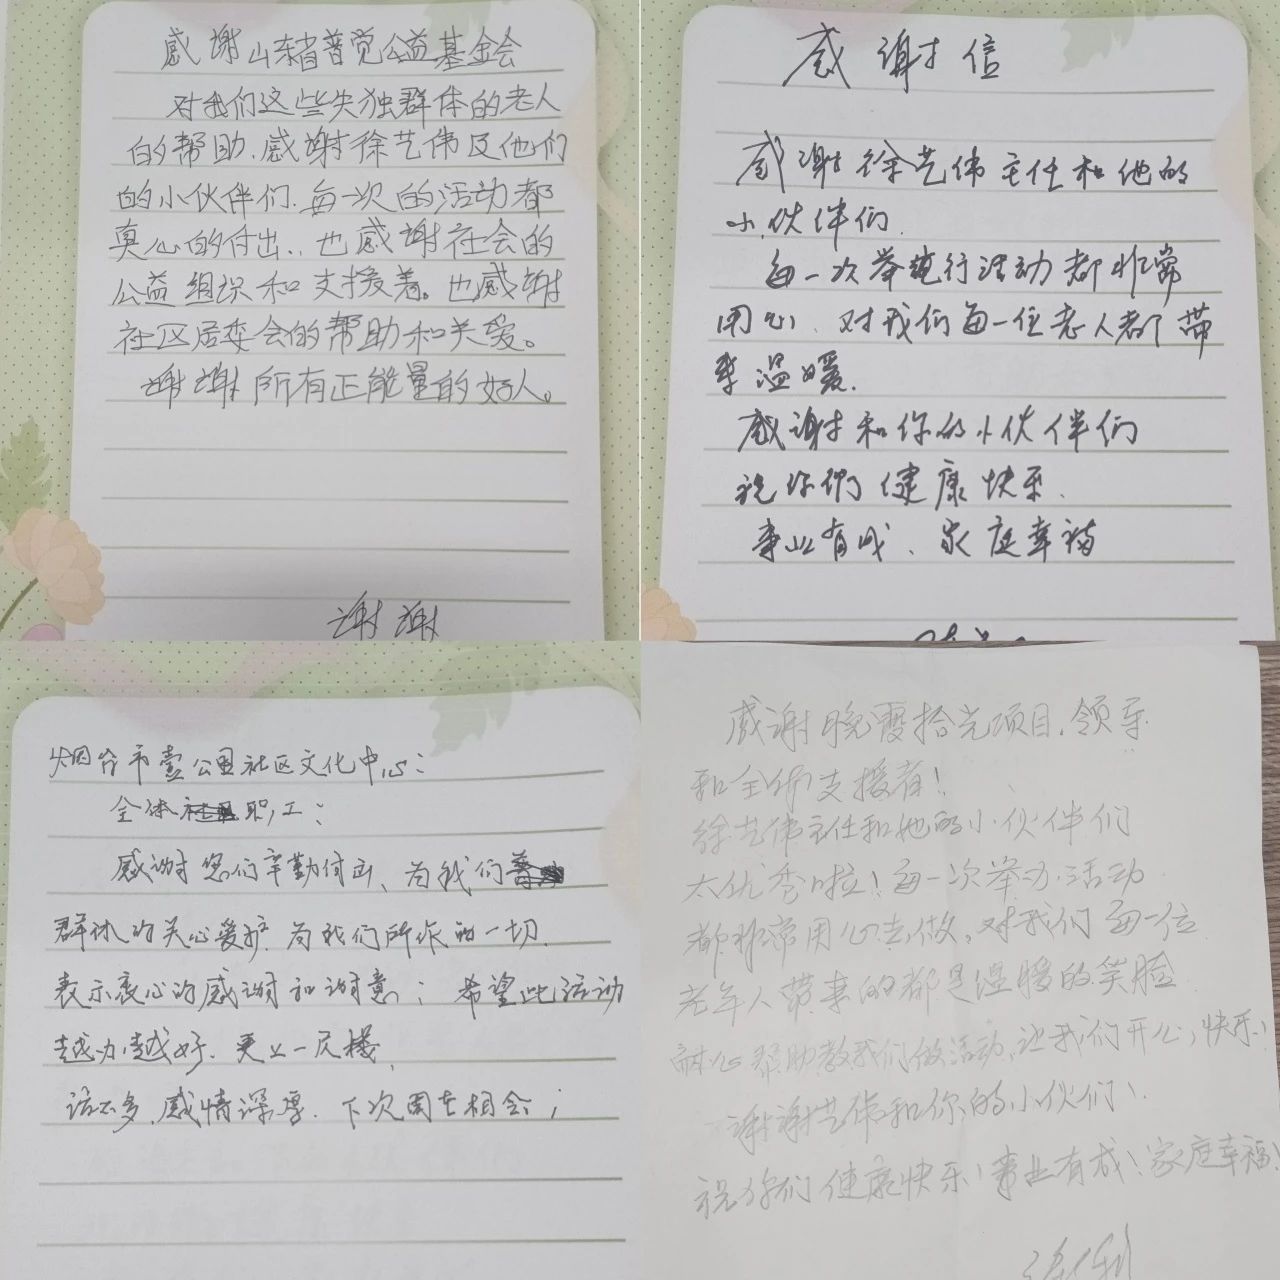 感谢山东省普觉公益基金会
对我们这些失独群体的老人
的帮助.感谢徐艺伟及他们
的小伙伴们.每一次的活动都
真心的付出..也感谢社会的
公益组织和支援着。也感谢
社区居委会的帮助和关爱。
谢谢所有正能量的好人。
谢谢
感谢信
感谢徐艺伟主任和他的
小伙伴们.
每一次举行活动都非常
用心、对我们每一位老人都带
来温暖.
感谢和你的小伙伴们
祝你們健康快乐.
事业有成、家庭幸福
烟台市壹公里社区文化中心:
全体职工:
感谢您们辛勤付出、为我们
群体的关心爱护.为我们所作的一切.
表示衷心的感谢和谢意;希望此活动
越办越好.更上一层楼.
话不多.感情深厚.下次周七相会;
感谢晚霞拾光项目.领导
和全体支援者!
徐艺伟主任和她的小伙伴们
太优秀啦!每一次举办活动
都非常用心去做,对我们每一位
老年人带来的都是温暖的笑脸
耐心帮助教我们做活动,让我们开心,快乐!
谢谢艺伟和你的小伙们!
祝你们健康快乐!事业有成!家庭幸福!